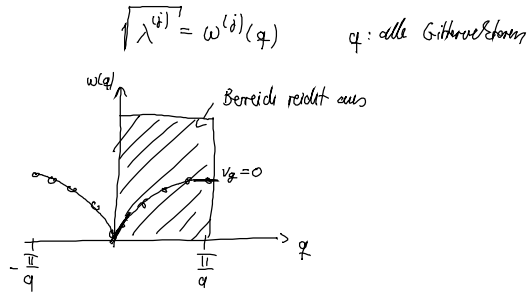 √λ^(j) = ω^(j)(q)    q: alle Gittervektoren
ω(q)
Bereich reicht aus
v_g = 0
q
-π/a    π/a